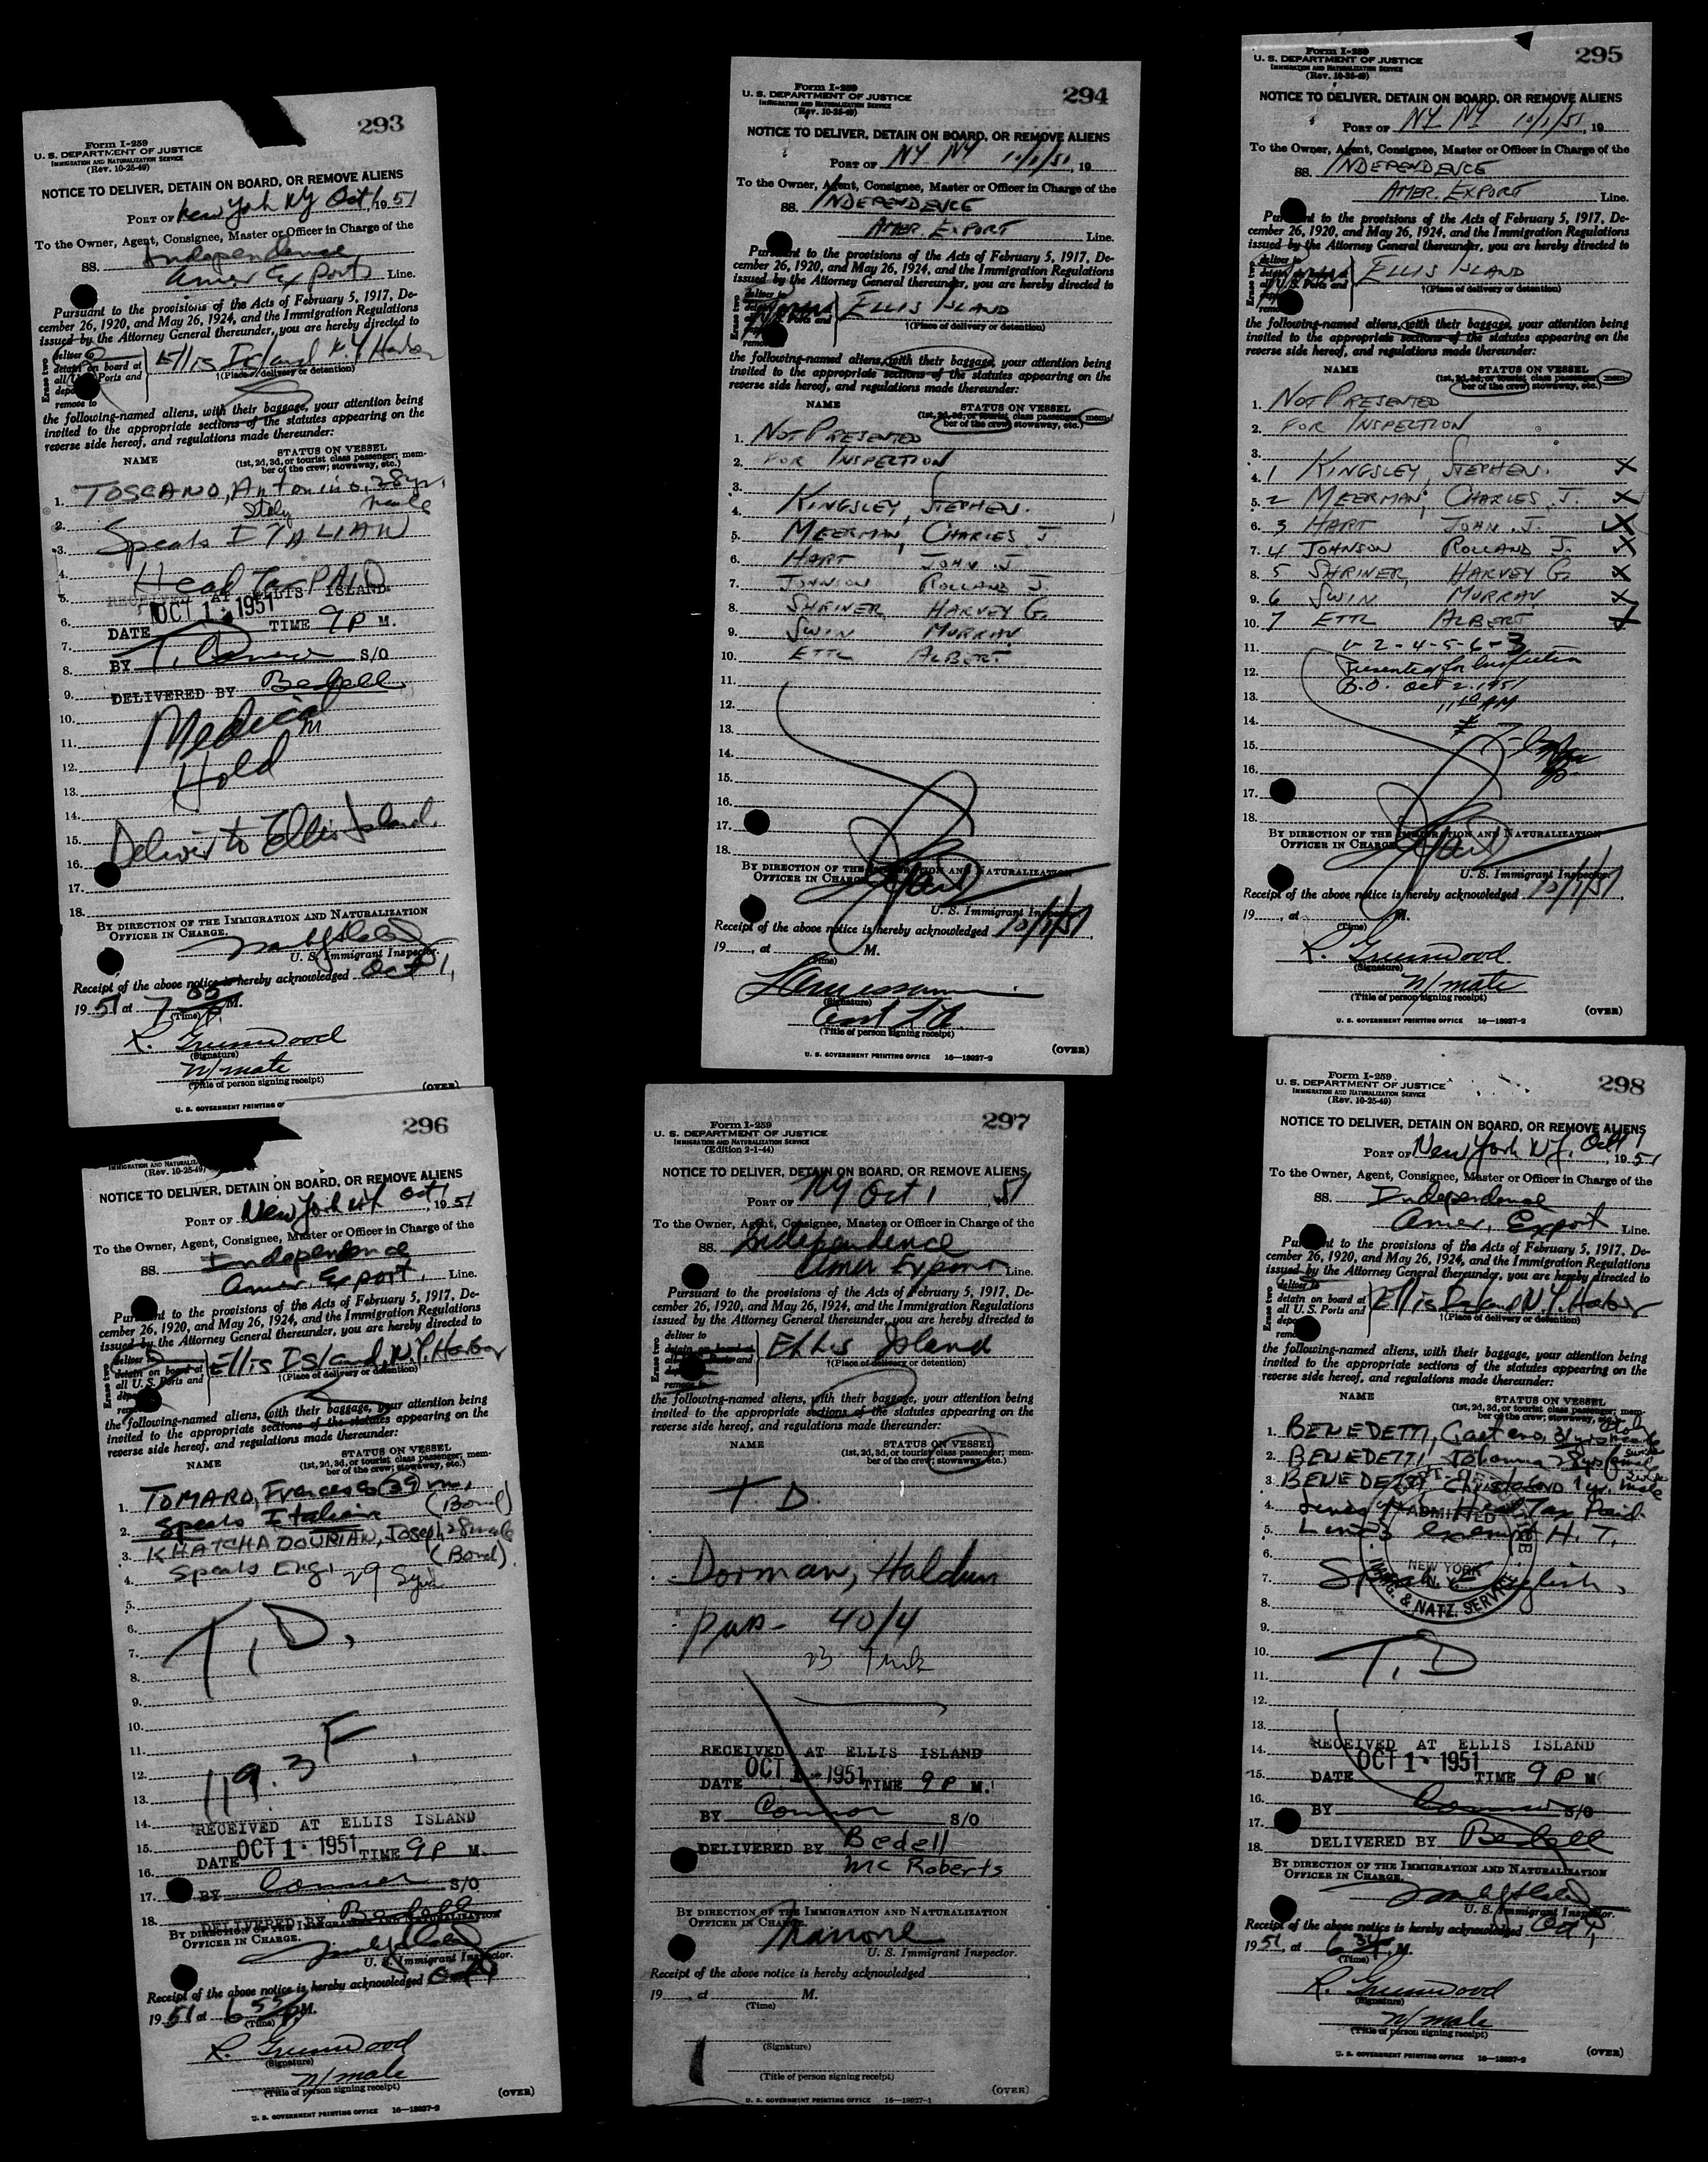 293
Form I-259
U. S. DEPARTMENT OF JUSTICE
IMMIGRATION AND NATURALIZATION SERVICE
(Rev. 10-25-49)
NOTICE TO DELIVER, DETAIN ON BOARD, OR REMOVE ALIENS
PORT OF New York NY Oct 1, 1951
To the Owner, Agent, Consignee, Master or Officer in Charge of the
SS. Independence
Amer Export Line.
Pursuant to the provisions of the Acts of February 5, 1917, De-
cember 26, 1920, and May 26, 1924, and the Immigration Regulations
issued by the Attorney General thereunder, you are hereby directed to
Erase two
deliver to
detain on board at
all U. S. Ports and
remove to
Ellis Island N.Y Harbor
†(Place of delivery or detention)
the following-named aliens, with their baggage, your attention being
invited to the appropriate sections of the statutes appearing on the
reverse side hereof, and regulations made thereunder:
NAME
STATUS ON VESSEL
(1st, 2d, 3d, or tourist class passenger; mem-
ber of the crew; stowaway, etc.)
1. TOSCANO, Antonino, 28 yr. male
2. Italy
3. Speaks ITALIAN
4. Head Tax PAID
5. RECEIVED AT ELLIS ISLAND
6. DATE OCT 1 - 1951 TIME 9 P M.
7.
8. BY T. Connor S/O
9. DELIVERED BY Bedell
10. Medical
11.
12. Hold
13.
14.
15. Deliver to Ellis Island
16.
17.
18.
BY DIRECTION OF THE IMMIGRATION AND NATURALIZATION
OFFICER IN CHARGE.
U. S. Immigrant Inspector.
Receipt of the above notice is hereby acknowledged Oct 1,
1951 at 7 55 P M.
(Time)
R. Greenwood
(Signature)
n/mate
(Title of person signing receipt)
(OVER)
U. S. GOVERNMENT PRINTING OF
294
Form I-259
U. S. DEPARTMENT OF JUSTICE
IMMIGRATION AND NATURALIZATION SERVICE
(Rev. 10-25-49)
NOTICE TO DELIVER, DETAIN ON BOARD, OR REMOVE ALIENS
PORT OF NY NY 10/1/51, 19
To the Owner, Agent, Consignee, Master or Officer in Charge of the
SS. INDEPENDENCE
AMER. EXPORT Line.
Pursuant to the provisions of the Acts of February 5, 1917, De-
cember 26, 1920, and May 26, 1924, and the Immigration Regulations
issued by the Attorney General thereunder, you are hereby directed to
Erase two
ELLIS ISLAND
†(Place of delivery or detention)
the following-named aliens, with their baggage, your attention being
invited to the appropriate sections of the statutes appearing on the
reverse side hereof, and regulations made thereunder:
NAME
STATUS ON VESSEL
(1st, 2d, 3d, or tourist class passenger; mem-
ber of the crew; stowaway, etc.)
1. NOT PRESENTED
2. FOR INSPECTION
3.
4. KINGSLEY, STEPHEN.
5. MEERMAN, CHARLES J.
6. HART JOHN J.
7. JOHNSON ROLLAND J.
8. SHRINER, HARVEY G.
9. SWIN MURRAY
10. ETTL ALBERT
11.
12.
13.
14.
15.
16.
17.
18.
BY DIRECTION OF THE IMMIGRATION AND NATURALIZATION
OFFICER IN CHARGE
U. S. Immigrant Inspector.
Receipt of the above notice is hereby acknowledged 10/1/51
19 , at M.
(Time)
(Signature)
(Title of person signing receipt)
U. S. GOVERNMENT PRINTING OFFICE 16—18937-2
(OVER)
295
Form I-259
U. S. DEPARTMENT OF JUSTICE
IMMIGRATION AND NATURALIZATION SERVICE
(Rev. 10-25-49)
NOTICE TO DELIVER, DETAIN ON BOARD, OR REMOVE ALIENS
PORT OF NY NY 10/1/51, 19
To the Owner, Agent, Consignee, Master or Officer in Charge of the
SS. INDEPENDENCE
AMER. EXPORT Line.
Pursuant to the provisions of the Acts of February 5, 1917, De-
cember 26, 1920, and May 26, 1924, and the Immigration Regulations
issued by the Attorney General thereunder, you are hereby directed to
Erase two
deliver to
detain on board at
all U. S. Ports and
ELLIS ISLAND
†(Place of delivery or detention)
the following-named aliens, with their baggage, your attention being
invited to the appropriate sections of the statutes appearing on the
reverse side hereof, and regulations made thereunder:
NAME
STATUS ON VESSEL
(1st, 2d, 3d, or tourist class passenger; mem-
ber of the crew; stowaway, etc.)
1. NOT PRESENTED
2. FOR INSPECTION
3.
4. 1 KINGSLEY, STEPHEN. X
5. 2 MEERMAN, CHARLES J. X
6. 3 HART JOHN J. X
7. 4 JOHNSON ROLLAND J. X
8. 5 SHRINER, HARVEY G. X
9. 6 SWIN MURRAY X
10. 7 ETTL ALBERT X
11. 1- 2 - 4 - 5 - 6 - 3
12. Presented for Inspection
13. B.O. Oct 2, 1951
14. 11 10 AM
15.
16.
17.
18.
BY DIRECTION OF THE IMMIGRATION AND NATURALIZATION
OFFICER IN CHARGE
U. S. Immigrant Inspector.
Receipt of the above notice is hereby acknowledged 10/1/51
19 , at M.
(Time)
R. Greenwood
(Signature)
n/mate
(Title of person signing receipt)
(OVER)
U. S. GOVERNMENT PRINTING OFFICE 16—18937-2
296
IMMIGRATION AND NATURALIZ
(Rev. 10-25-49)
NOTICE TO DELIVER, DETAIN ON BOARD, OR REMOVE ALIENS
PORT OF New York NY Oct 1, 1951
To the Owner, Agent, Consignee, Master or Officer in Charge of the
SS. Independence
Amer. Export. Line.
Pursuant to the provisions of the Acts of February 5, 1917, De-
cember 26, 1920, and May 26, 1924, and the Immigration Regulations
issued by the Attorney General thereunder, you are hereby directed to
Erase two
deliver to
detain on board at
all U. S. Ports and
Ellis Island, N.Y. Harbor
†(Place of delivery or detention)
the following-named aliens, with their baggage, your attention being
invited to the appropriate sections of the statutes appearing on the
reverse side hereof, and regulations made thereunder:
NAME
STATUS ON VESSEL
(1st, 2d, 3d, or tourist class passenger; mem-
ber of the crew; stowaway, etc.)
1. TOMARO, Francesco 39 m. (Bond)
2. Speaks Italian
3. KHATCHADOURIAN, Joseph 28 male (Bond).
4. Speaks Eng. 29
5.
6.
7. T. D.
8.
9.
10.
11. F
12. 119.3
13.
14. RECEIVED AT ELLIS ISLAND
15. DATE OCT 1 - 1951 TIME 9 P M.
16.
17. BY Connor S/O
18. DELIVERED BY Bedell
BY DIRECTION OF THE IMMIGRATION AND NATURALIZATION
OFFICER IN CHARGE.
U. S. Immigrant Inspector.
Receipt of the above notice is hereby acknowledged Oct 1
1951 at 6 55 P M.
(Time)
R. Greenwood
(Signature)
n/mate
(Title of person signing receipt)
(OVER)
U. S. GOVERNMENT PRINTING OFFICE 16—18937-2
297
Form I-259
U. S. DEPARTMENT OF JUSTICE
IMMIGRATION AND NATURALIZATION SERVICE
(Edition 2-1-44)
NOTICE TO DELIVER, DETAIN ON BOARD, OR REMOVE ALIENS
PORT OF NY Oct 1 51
To the Owner, Agent, Consignee, Master or Officer in Charge of the
SS. Independence
Amer Export Line.
Pursuant to the provisions of the Acts of February 5, 1917, De-
cember 26, 1920, and May 26, 1924, and the Immigration Regulations
issued by the Attorney General thereunder, you are hereby directed to
Erase two
deliver to
detain on board at
all U. S. Ports and
remove to
Ellis Island
†(Place of delivery or detention)
the following-named aliens, with their baggage, your attention being
invited to the appropriate sections of the statutes appearing on the
reverse side hereof, and regulations made thereunder:
NAME
STATUS ON VESSEL
(1st, 2d, 3d, or tourist class passenger; mem-
ber of the crew; stowaway, etc.)
T D.
Dorman, Haldun
pas - 40/4
23 Turk
RECEIVED AT ELLIS ISLAND
DATE OCT 1 - 1951 TIME 9 P M.
BY Connor S/O
DELIVERED BY Bedell
Mc Roberts
BY DIRECTION OF THE IMMIGRATION AND NATURALIZATION
OFFICER IN CHARGE.
U. S. Immigrant Inspector.
Receipt of the above notice is hereby acknowledged
19 , at M.
(Time)
(Signature)
(Title of person signing receipt)
(OVER)
U. S. GOVERNMENT PRINTING OFFICE 16—18937-1
298
Form I-259
U. S. DEPARTMENT OF JUSTICE
IMMIGRATION AND NATURALIZATION SERVICE
(Rev. 10-25-49)
NOTICE TO DELIVER, DETAIN ON BOARD, OR REMOVE ALIENS
PORT OF New York NY, Oct 1, 1951
To the Owner, Agent, Consignee, Master or Officer in Charge of the
SS. Independence
Amer. Export Line.
Pursuant to the provisions of the Acts of February 5, 1917, De-
cember 26, 1920, and May 26, 1924, and the Immigration Regulations
issued by the Attorney General thereunder, you are hereby directed to
Erase two
deliver to
detain on board at
all U. S. Ports and
Ellis Island N.Y. Harbor
†(Place of delivery or detention)
the following-named aliens, with their baggage, your attention being
invited to the appropriate sections of the statutes appearing on the
reverse side hereof, and regulations made thereunder:
NAME
STATUS ON VESSEL
(1st, 2d, 3d, or tourist class passenger; mem-
ber of the crew; stowaway, etc.)
1. BENEDETTI, Gaetano, 31 yrs male
2. BENEDETTI, Johanna 28 yrs female
3. BENEDETTI, 1 yr. male
4. Lines Head Tax Paid
5. Line 3 exempt H. T.
6.
7. Speak English.
ADMITTED
NEW YORK
N. Y.
IMMG. & NATZ. SERVICE
8.
9.
10. T. D
11.
12.
13.
14. RECEIVED AT ELLIS ISLAND
15. DATE OCT 1 - 1951 TIME 9 P M
16. BY Connor S/O
17.
18. DELIVERED BY Bedell
BY DIRECTION OF THE IMMIGRATION AND NATURALIZATION
OFFICER IN CHARGE.
U. S. Immigrant Inspector.
Receipt of the above notice is hereby acknowledged Oct 1,
1951, at 6 34 P. M.
(Time)
R. Greenwood
(Signature)
n/mate
(Title of person signing receipt)
(OVER)
U. S. GOVERNMENT PRINTING OFFICE 16—18937-2